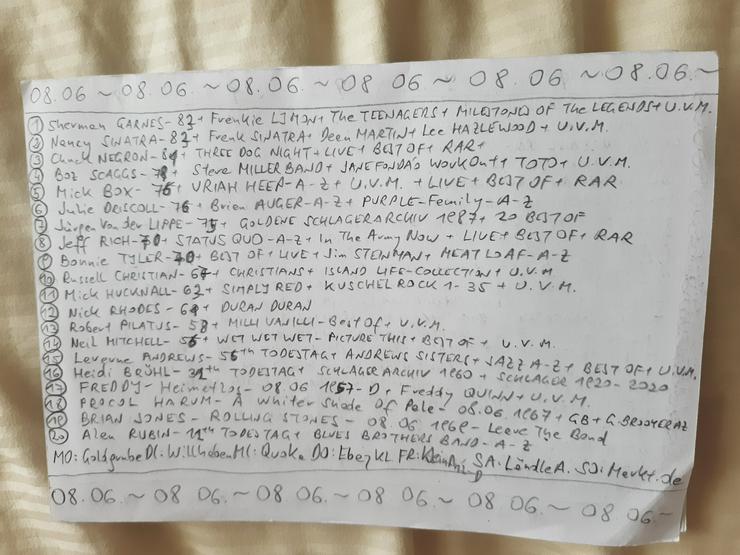 08.06 ~ 08.06. ~ 08.06. ~ 08 06. ~ 08.06. ~ 08.06. ~
① Sherman GARNES - 83 + Frenkie LIMON + The TEENAGERS + MILESTONES OF The LEGENDS + U.V.M.
② Nancy SINATRA - 83 + Frenk SINATRA + Deen MARTIN + Lee HAZLEWOOD + U.V.M.
③ Chuck NEGRON - 81 + THREE DOG NIGHT + LIVE + BEST OF + RAR +
④ BOZ SCAGGS - 79 + Steve MILLER BAND + JANE FONDA'S WORKOUT + TOTO + U.V.M.
⑤ Mick BOX - 76 + URIAH HEEP - A-Z + U.V.M. + LIVE + BEST OF + RAR
⑥ Julie DRISCOLL - 76 + Brien AUGER - A-Z + PURPLE - Femily - A-Z
⑦ Jürgen Von der LIPPE - 75 + GOLDENE SCHLAGERARCHIV 1987 + 20 BEST OF
⑧ Jeff RICH - 70 + STATUS QUO - A-Z + In The Army Now + LIVE + BEST OF + RAR
⑨ Bonnie TYLER - 70 + BEST OF + LIVE + Jim STEINMAN + MEAT LOAF - A-Z
⑩ Russell CHRISTIAN - 64 + CHRISTIANS + ISLAND LIFE - COLLECTION + U.V.M
⑪ Mick HUCKNALL - 63 + SIMPLY RED + KUSCHELROCK 1-35 + U.V.M.
⑫ Nick RHODES - 61 + DURAN DURAN
⑬ Robert PILATUS - 58 + MILLI VANILLI - Best Of + U.V.M.
⑭ Neil MITCHELL - 56 + WET WET WET - PICTURE THIS + BEST OF + U.V.M.
⑮ Leverne ANDREWS - 56th TODESTAG + ANDREWS SISTERS + JAZZ A-Z + BEST OF + U.V.M.
⑯ Heidi BRÜHL - 32th TODESTAG + SCHLAGERARCHIV 1960 + SCHLAGER 1920 - 2020
⑰ FREDDY - Heimetlos - 08.06 1957 - D + Freddy QUINN + U.V.M.
⑱ PROCOL HARUM - A Whiter Shade Of Pale - 08.06. 1967 + GB + G. BROOKER AZ
⑲ BRIAN JONES - ROLLING STONES - 08.06 1969 - Leave The Band
⑳ Alen RUBIN - 11th TODESTAG + BLUES BROTHERS BAND - A-Z
MO: Goldgrube DI: Willheben MI: Quoka DO: Ebey KL FR: SA: Ländle A. SO: Merkt.de
08.06. ~ 08.06. ~ 08.06. ~ 08.06. ~ 08.06. ~ 08.06. ~